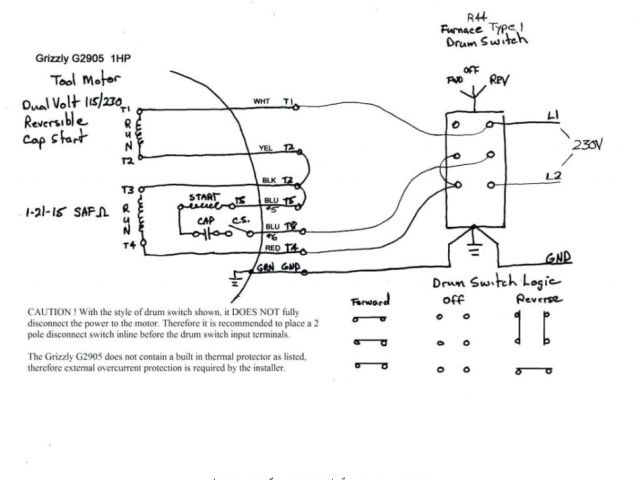 R44
Furnace Type 1
Drum Switch
Grizzly G2905 1HP
Tool Motor
Dual Volt 115/230
Reversible
Cap Start
1-21-15 SAFΩ
OFF
FWD
REV
T1
RUN
T2
T3
RUN
T4
WHT T1
YEL T2
BLK T3
START
T5
BLU T5
#5
CAP
C.S.
BLU T8
#6
RED T4
GRN GND
L1
230V
L2
GND
Drum Switch Logic
Forward
OFF
Reverse
CAUTION ! With the style of drum switch shown, it DOES NOT fully
disconnect the power to the motor. Therefore it is recommended to place a 2
pole disconnect switch inline before the drum switch input terminals.
The Grizzly G2905 does not contain a built in thermal protector as listed,
therefore external overcurrent protection is required by the installer.